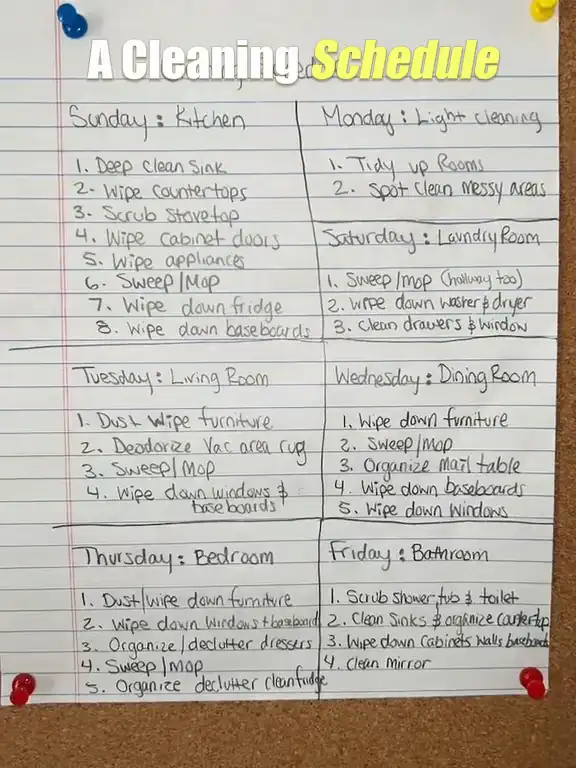 A Cleaning Schedule
Sunday: Kitchen
1. Deep Clean Sink
2. Wipe Countertops
3. Scrub Stovetop
4. Wipe Cabinet doors
5. Wipe appliances
6. Sweep/Mop
7. Wipe down fridge
8. Wipe down baseboards
Monday: Light cleaning
1. Tidy up Rooms
2. Spot Clean messy areas
Saturday: Laundry Room
1. Sweep/mop (hallway too)
2. Wipe down washer & dryer
3. Clean drawers & window
Tuesday: Living Room
1. Dust Wipe furniture
2. Deodorize Vac area rug
3. Sweep/Mop
4. Wipe down windows &
baseboards
Wednesday: Dining Room
1. Wipe down furniture
2. Sweep/Mop
3. Organize Mail table
4. Wipe down baseboards
5. Wipe down Windows
Thursday: Bedroom
1. Dust/wipe down furniture
2. Wipe down Windows + baseboard
3. Organize/declutter dressers
4. Sweep/Mop
5. Organize declutter clean fridge
Friday: Bathroom
1. Scrub shower, tub & toilet
2. Clean Sinks & organize countertop
3. Wipe down Cabinets walls baseboards
4. Clean mirror